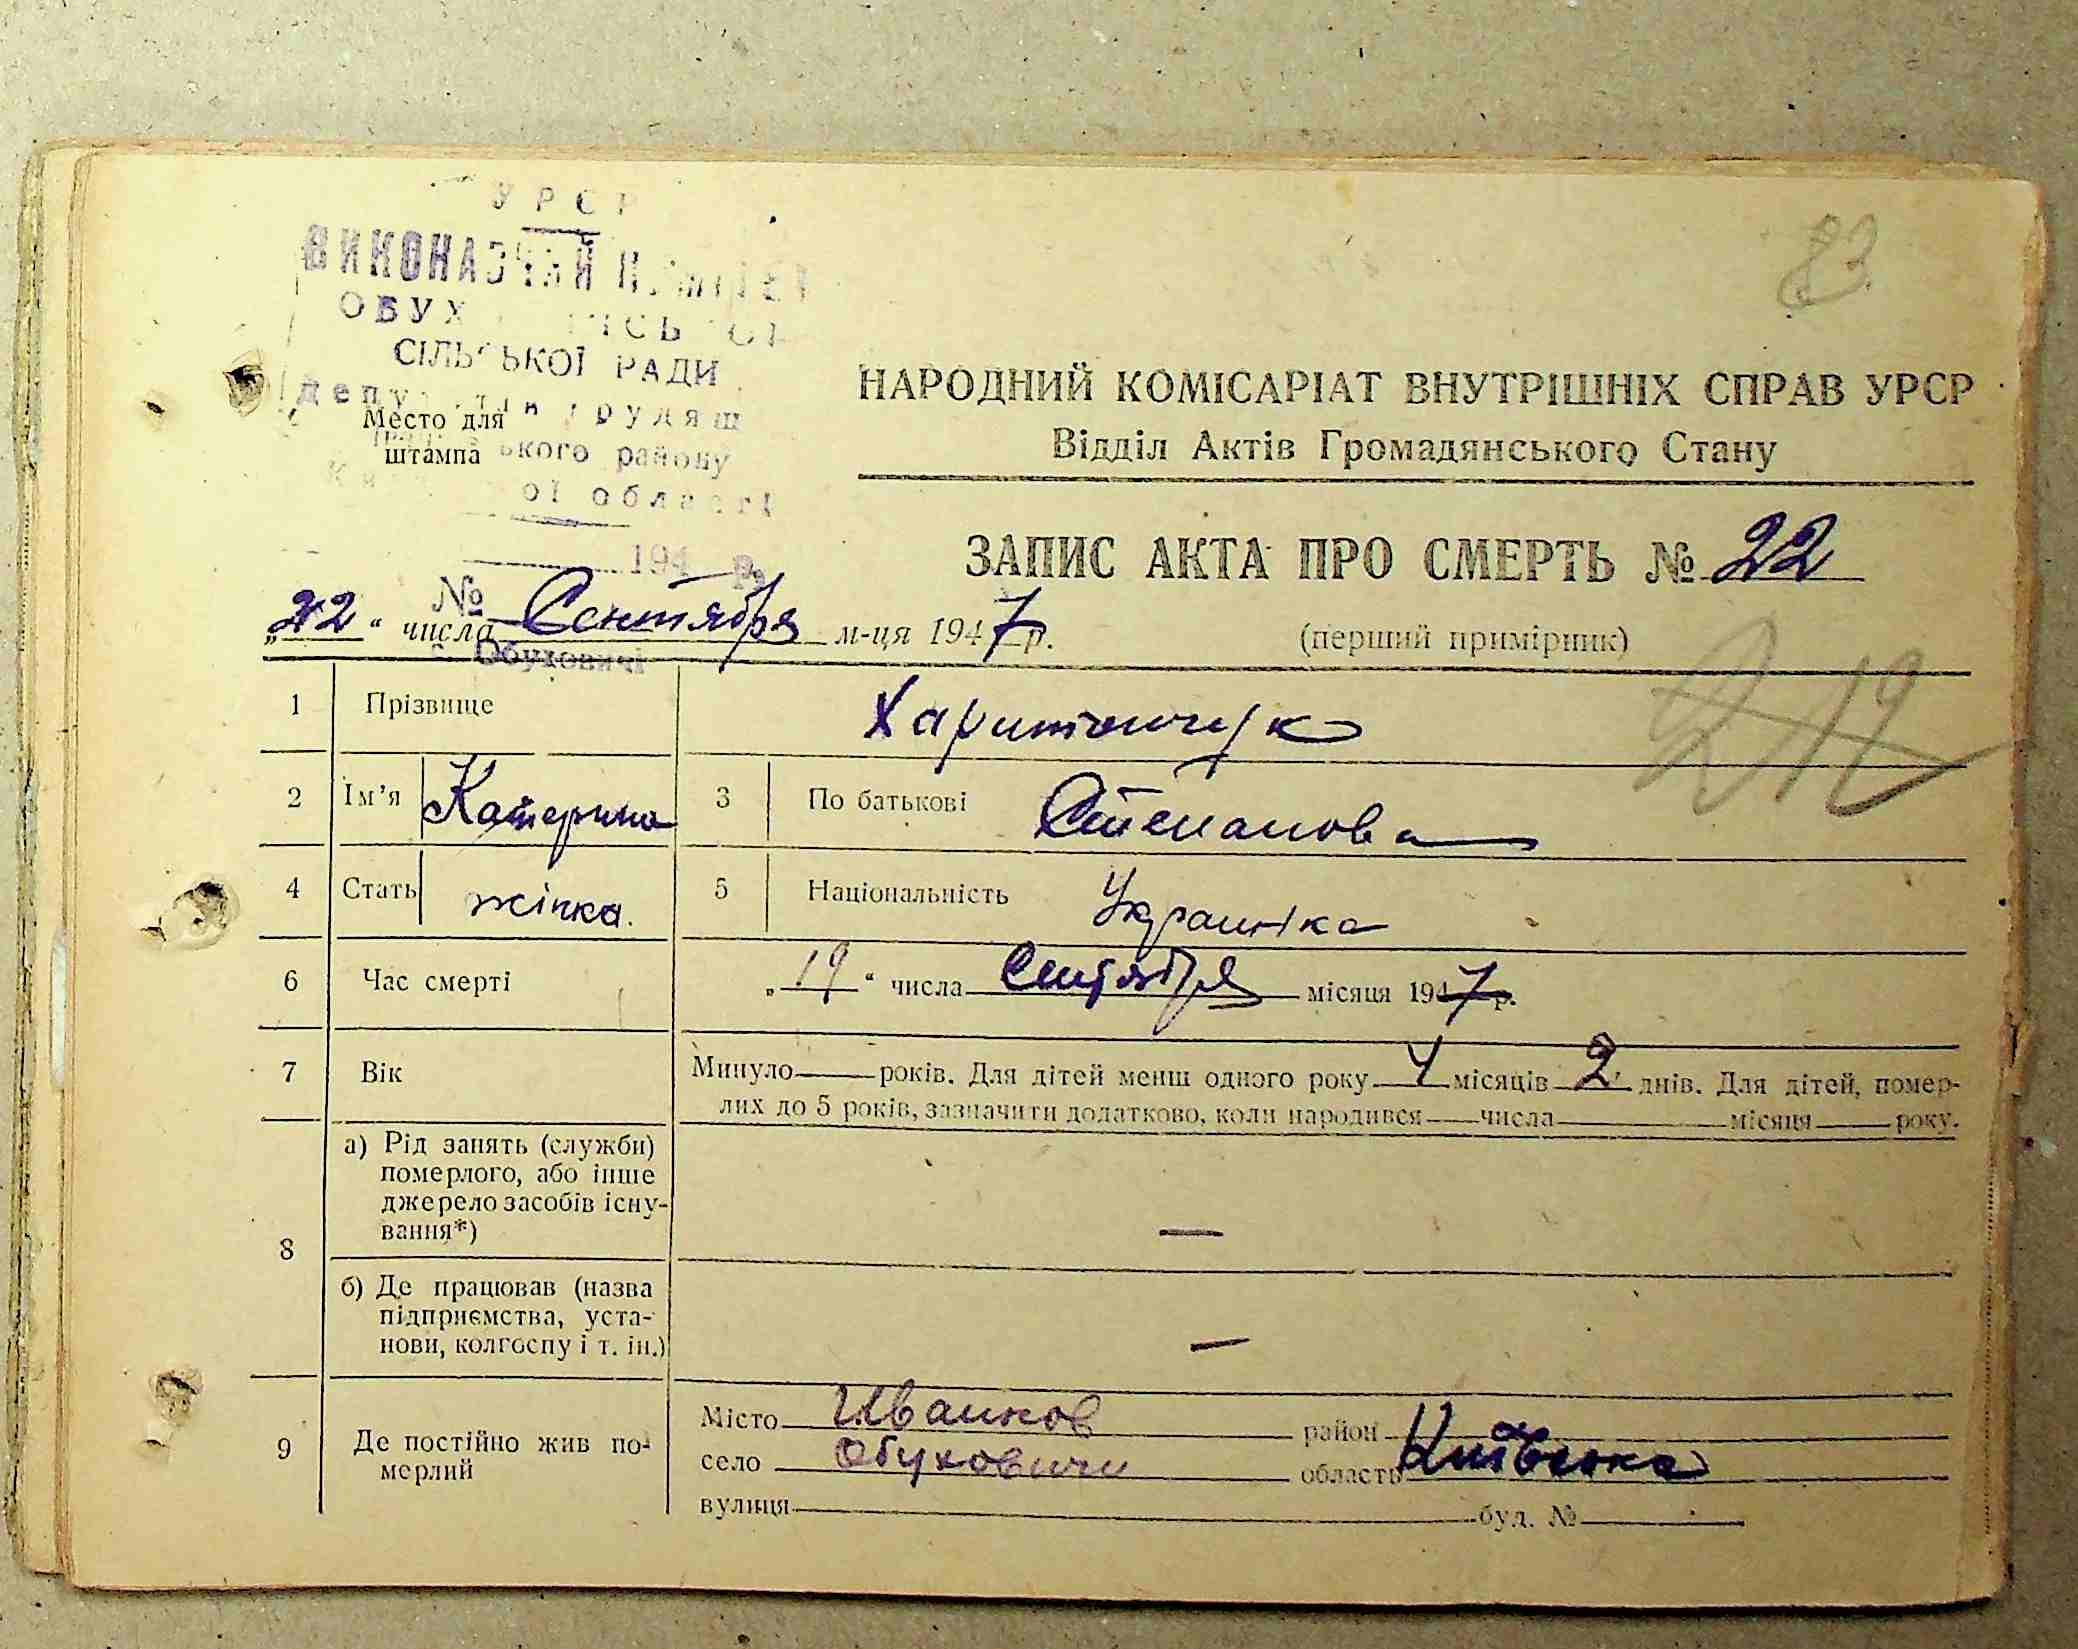 УРСР
ВИКОНАВЧИЙ
СІЛЬСЬКОЇ РАДИ
Место для
штампа
району
області
194 р.
№
Обуховичі
83
НАРОДНИЙ КОМІСАРІАТ ВНУТРІШНІХ СПРАВ УРСР
Відділ Актів Громадянського Стану
ЗАПИС АКТА ПРО СМЕРТЬ № 22
„22“ числа Сентября м-ця 1947 р.
(перший примірник)
212
1 Прізвище Харитончук
2 Ім'я Катерина 3 По батькові Степановна
4 Стать жінка. 5 Національність Украинка
6 Час смерті „19“ числа Сентября місяця 1947 р.
7 Вік Минуло — років. Для дітей менш одного року 4 місяців 2 днів. Для дітей, помер-
лих до 5 років, зазначити додатково, коли народився числа місяця року.
8 а) Рід занять (служби)
померлого, або інше
джерело засобів існу-
вання*) —
б) Де працював (назва
підприємства, уста-
нови, колгоспу і т. ін.) —
9 Де постійно жив по-
мерлий
Місто Иванков район
село Обуховичи область Київська
вулиця буд. №